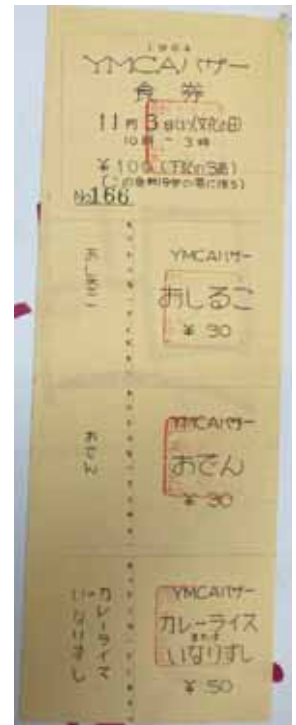 1964
YMCAバザー
食券
11月3日(火)(文化の日)
10時～3時
¥100(下記の3点)
No166
おしるこ
YMCAバザー
おしるこ
¥30
おでん
YMCAバザー
おでん
¥30
カレーライス
いなりずし
YMCAバザー
カレーライス
または
いなりずし
¥50